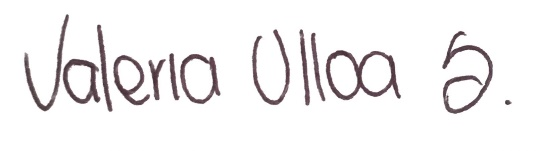 Valeria Ulloa S.